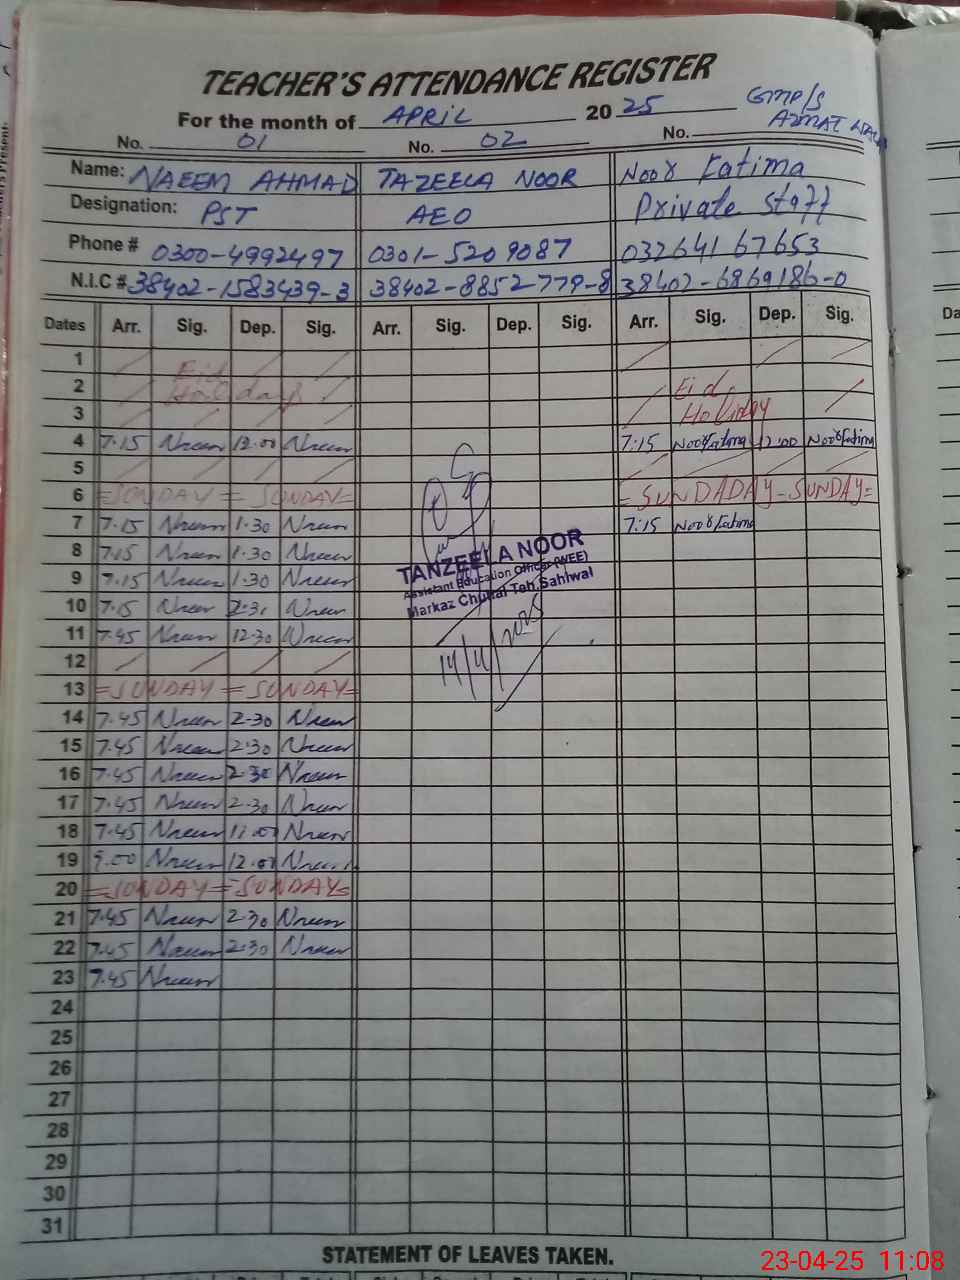 TEACHER'S ATTENDANCE REGISTER
For the month of APRIL 2025 GMP/S
AZMAT
No. 01 No. 02 No.
Name: NAEEM AHMAD TAZEELA NOOR Noor Fatima
Designation: PST AEO Private Staff
Phone # 0300-4992497 0301-5209087 03264167653
N.I.C # 38402-1583439-3 38402-8852779-8 38402-6869186-0
Dates Arr. Sig. Dep. Sig. Arr. Sig. Dep. Sig. Arr. Sig. Dep. Sig.
1 Eid
2 Holidays Eid
3 Holiday
4 7.15 Naeem 12.00 Naeem 7:15 Noor Fatima 12:00 Noor Fatima
5
6 =SUNDAY = SUNDAY= =SUNDADAY-SUNDAY=
7 7.15 Naeem 1.30 Naeem 7:15 Noor Fatima
8 7.15 Naeem 1.30 Naeem
9 7.15 Naeem 1.30 Naeem
10 7.15 Naeem 2.30 Naeem
11 7.45 Naeem 12.30 Naeem
TANZEELA NOOR
Assistant Education Officer (WEE)
Markaz Teh.Sahiwal
14/4/2025
12
13 =SUNDAY = SUNDAY=
14 7.45 Naeem 2.30 Naeem
15 7.45 Naeem 2.30 Naeem
16 7.45 Naeem 2.30 Naeem
17 7.45 Naeem 2.30 Naeem
18 7.45 Naeem 11.00 Naeem
19 9.00 Naeem 12.00 Naeem
20 =SUNDAY = SUNDAY=
21 7.45 Naeem 2.30 Naeem
22 7.45 Naeem 2.30 Naeem
23 7.45 Naeem
24
25
26
27
28
29
30
31
STATEMENT OF LEAVES TAKEN.
23-04-25 11:08